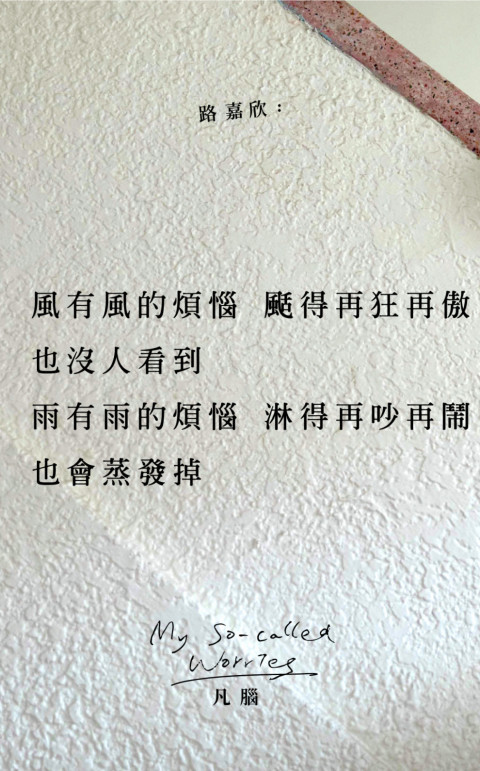 路嘉欣：
風有風的煩惱 颳得再狂再傲
也沒人看到
雨有雨的煩惱 淋得再吵再鬧
也會蒸發掉
My So-called
Worries
凡腦